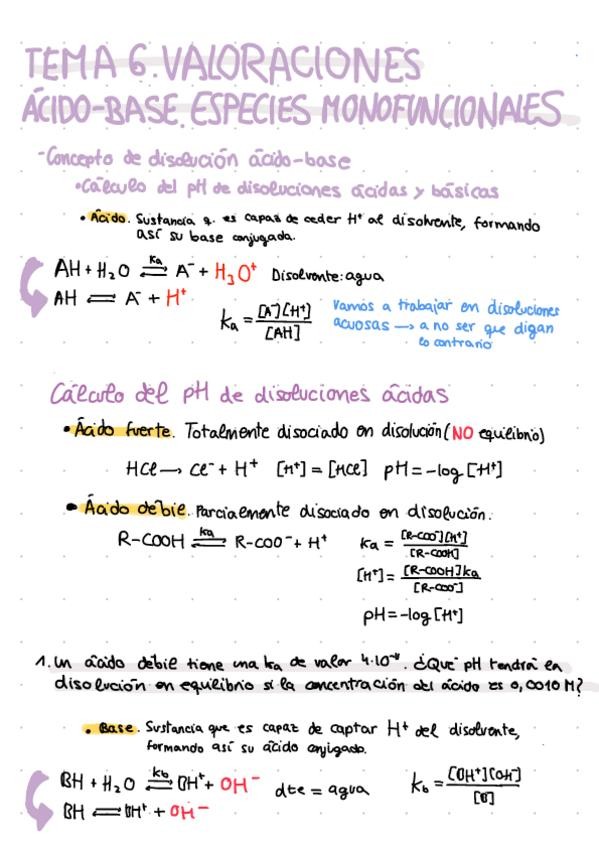 TEMA 6. VALORACIONES
ÁCIDO-BASE. ESPECIES MONOFUNCIONALES
-Concepto de disolución ácido-base
•Cálculo del pH de disoluciones ácidas y básicas
• Ácido. Sustancia q. es capaz de ceder H⁺ al disolvente, formando
así su base conjugada.
AH + H₂O ⇌ A⁻ + H₃O⁺ Disolvente: agua
ka
AH ⇌ A⁻ + H⁺
ka = [A⁻][H⁺] / [AH]
Vamos a trabajar en disoluciones
acuosas → a no ser que digan
lo contrario
Cálculo del pH de disoluciones ácidas
• Ácido fuerte. Totalmente disociado en disolución (NO equilibrio)
HCl → Cl⁻ + H⁺ [H⁺] = [HCl] pH = -log [H⁺]
• Ácido débil. Parcialmente disociado en disolución.
R-COOH ⇌ R-COO⁻ + H⁺
ka
ka = [R-COO⁻][H⁺] / [R-COOH]
[H⁺] = [R-COOH] ka / [R-COO⁻]
pH = -log [H⁺]
1. Un ácido débil tiene una ka de valor . ¿Qué pH tendrá en
disolución en equilibrio si la concentración del ácido es 0,0010 M?
• Base. Sustancia que es capaz de captar H⁺ del disolvente,
formando así su ácido conjugado.
BH + H₂O ⇌ BH⁺ + OH⁻ dte = agua
kb
BH ⇌ BH⁺ + OH⁻
kb = [OH⁻] / [B]